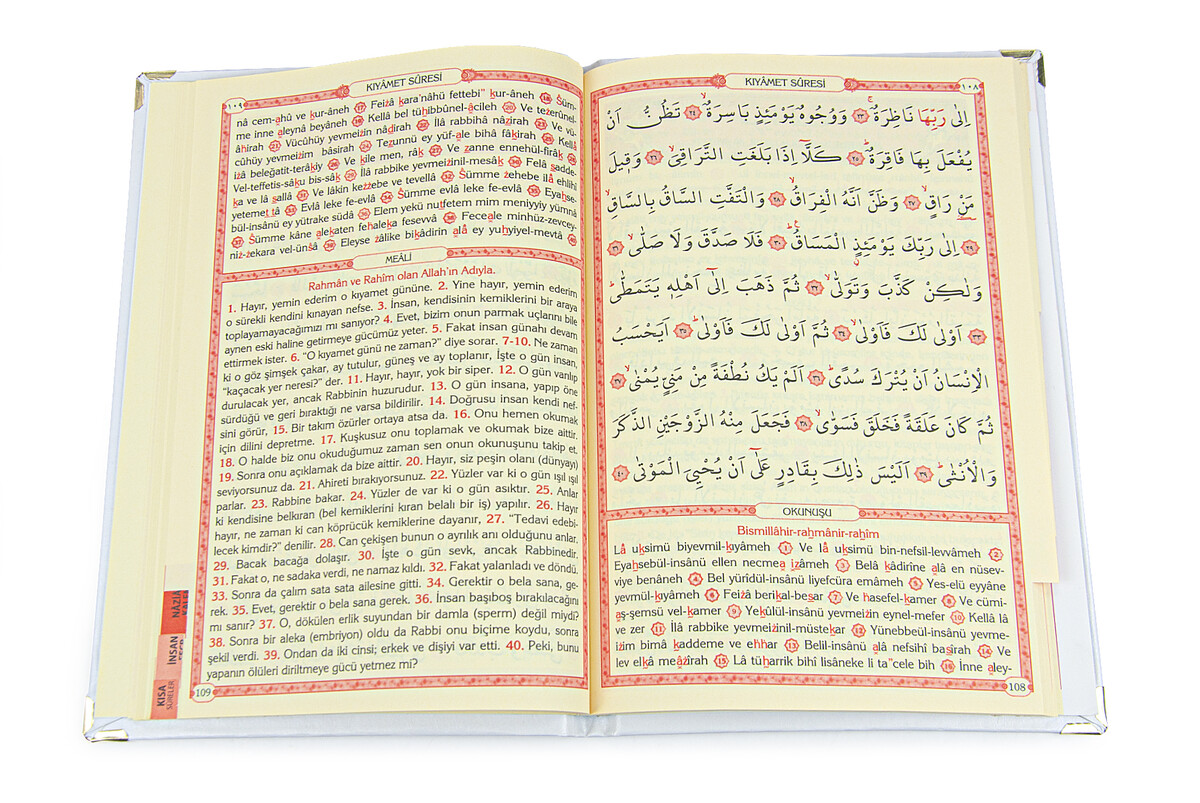 KIYÂMET SÛRESİ
١٠٨
اِلٰى رَبِّهَا نَاظِرَةٌۚ ﴿٢٣﴾ وَوُجُوهٌ يَوْمَئِذٍ بَاسِرَةٌۙ ﴿٢٤﴾ تَظُنُّ اَنْ
يُفْعَلَ بِهَا فَاقِرَةٌۜ ﴿٢٥﴾ كَلَّٓا اِذَا بَلَغَتِ التَّرَاقِيَۙ ﴿٢٦﴾ وَق۪يلَ
مَنْ رَاقٍۙ ﴿٢٧﴾ وَظَنَّ اَنَّهُ الْفِرَاقُۙ ﴿٢٨﴾ وَالْتَفَّتِ السَّاقُ بِالسَّاقِۙ
﴿٢٩﴾ اِلٰى رَبِّكَ يَوْمَئِذٍ الْمَسَاقُۜ ﴿٣٠﴾ فَلَا صَدَّقَ وَلَا صَلّٰىۙ ﴿٣١﴾
وَلٰكِنْ كَذَّبَ وَتَوَلّٰىۙ ﴿٣٢﴾ ثُمَّ ذَهَبَ اِلٰٓى اَهْلِه۪ يَتَمَطّٰىۜ
﴿٣٣﴾ اَوْلٰى لَكَ فَاَوْلٰىۙ ﴿٣٤﴾ ثُمَّ اَوْلٰى لَكَ فَاَوْلٰىۜ ﴿٣٥﴾ اَيَحْسَبُ
الْاِنْسَانُ اَنْ يُتْرَكَ سُدًىۜ ﴿٣٦﴾ اَلَمْ يَكُ نُطْفَةً مِنْ مَنِيٍّ يُمْنٰىۙ ﴿٣٧﴾
ثُمَّ كَانَ عَلَقَةً فَخَلَقَ فَسَوّٰىۙ ﴿٣٨﴾ فَجَعَلَ مِنْهُ الزَّوْجَيْنِ الذَّكَرَ
وَالْاُنْثٰىۜ ﴿٣٩﴾ اَلَيْسَ ذٰلِكَ بِقَادِرٍ عَلٰٓى اَنْ يُحْيِيَ الْمَوْتٰى ﴿٤٠﴾
OKUNUŞU
Bismillâhir-rahmânir-rahîm
Lâ uksimü biyevmil-kıyâmeh 1 Ve lâ uksimü bin-nefsil-levvameh 2
Eyahsebül-insânü ellen necmea ızâmeh 3 Belâ kâdirîne alâ en nüsev-
viye benâneh 4 Bel yürîdül-insânü liyefcüra emâmeh 5 Yes-elü eyyâne
yevmül-kıyâmeh 6 Feizâ berikal-besar 7 Ve hasefel-kamer 8 Ve cümi-
aş-şemsü vel-kamer 9 Yekûlül-insânü yevmeizin eynel-mefer 10 Kellâ lâ
ve zer 11 İlâ rabbike yevmeizinil-müstekar 12 Yünebbeül-insânü yevme-
izim bimâ kaddeme ve ehhar 13 Belil-insânü alâ nefsihî basîrah 14 Ve
lev elkâ meâzîrah 15 Lâ tüharrik bihî lisâneke li ta"cele bih 16 İnne aley-
108
KIYÂMET SÛRESİ
١٠٩
nâ cem-ahû ve kur-âneh 17 Feizâ kara'nâhü fettebi" kur-âneh 18 Süm-
me inne aleynâ beyâneh 19 Kellâ bel tühibbûnel-âcileh 20 Ve tezerûnel-
âhirah 21 Vücûhüy yevmeizin nâdirah 22 İlâ rabbihâ nâzirah 23 Ve vü-
cûhüy yevmeizim bâsirah 24 Tezunnü ey yüf-ale bihâ fâkirah 25 Kellâ
izâ beleğatit-terâkiy 26 Ve kîle men, râk 27 Ve zanne ennehül-firâk 28
Vel-teffetis-sâku bis-sâk 29 İlâ rabbike yevmeizinil-mesâk 30 Felâ sadde-
ka ve lâ sallâ 31 Ve lâkin kezzebe ve tevellâ 32 Sümme zehebe ilâ ehlihî
yetemet tâ 33 Evlâ leke fe-evlâ 34 Sümme evlâ leke fe-evlâ 35 Eyahse-
bül-insânü ey yütrake südâ 36 Elem yekü nutfetem mim meniyyiy yümnâ
37 Sümme kâne alekaten fehaleka fesevvâ 38 Feceale minhüz-zevcey-
niz-zekara vel-ünsâ 39 Eleyse zâlike bikâdirin alâ ey yuhyiyel-mevtâ 40
MEÂLİ
Rahmân ve Rahîm olan Allah'ın Adıyla.
1. Hayır, yemin ederim o kıyamet gününe. 2. Yine hayır, yemin ederim
o sürekli kendini kınayan nefse. 3. İnsan, kendisinin kemiklerini bir araya
toplayamayacağımızı mı sanıyor? 4. Evet, bizim onun parmak uçlarını bile
aynen eski haline getirmeye gücümüz yeter. 5. Fakat insan günahı devam
ettirmek ister. 6. "O kıyamet günü ne zaman?" diye sorar. 7-10. Ne zaman
ki o göz şimşek çakar, ay tutulur, güneş ve ay toplanır, İşte o gün insan,
"kaçacak yer neresi?" der. 11. Hayır, hayır, yok bir siper. 12. O gün varılıp
durulacak yer, ancak Rabbinin huzurudur. 13. O gün insana, yapıp öne
sürdüğü ve geri bıraktığı ne varsa bildirilir. 14. Doğrusu insan kendi nef-
sini görür, 15. Bir takım özürler ortaya atsa da. 16. Onu hemen okumak
için dilini depretme. 17. Kuşkusuz onu toplamak ve okumak bize aittir.
18. O halde biz onu okuduğumuz zaman sen onun okunuşunu takip et.
19. Sonra onu açıklamak da bize aittir. 20. Hayır, siz peşin olanı (dünyayı)
seviyorsunuz da. 21. Ahireti bırakıyorsunuz. 22. Yüzler var ki o gün ışıl ışıl
parlar. 23. Rabbine bakar. 24. Yüzler de var ki o gün asıktır. 25. Anlar
ki kendisine belkıran (bel kemiklerini kıran belalı bir iş) yapılır. 26. Hayır
hayır, ne zaman ki can köprücük kemiklerine dayanır, 27. "Tedavi edebi-
lecek kimdir?" denilir. 28. Can çekişen bunun o ayrılık anı olduğunu anlar.
29. Bacak bacağa dolaşır. 30. İşte o gün sevk, ancak Rabbinedir.
31. Fakat o, ne sadaka verdi, ne namaz kıldı. 32. Fakat yalanladı ve döndü.
33. Sonra da çalım sata sata ailesine gitti. 34. Gerektir o bela sana, ge-
rek. 35. Evet, gerektir o bela sana gerek. 36. İnsan başıboş bırakılacağını
mı sanır? 37. O, dökülen erlik suyundan bir damla (sperm) değil miydi?
38. Sonra bir aleka (embriyon) oldu da Rabbi onu biçime koydu, sonra
şekil verdi. 39. Ondan da iki cinsi; erkek ve dişiyi var etti. 40. Peki, bunu
yapanın ölüleri diriltmeye gücü yetmez mi?
109
İNSAN
KISA
SÛRELER